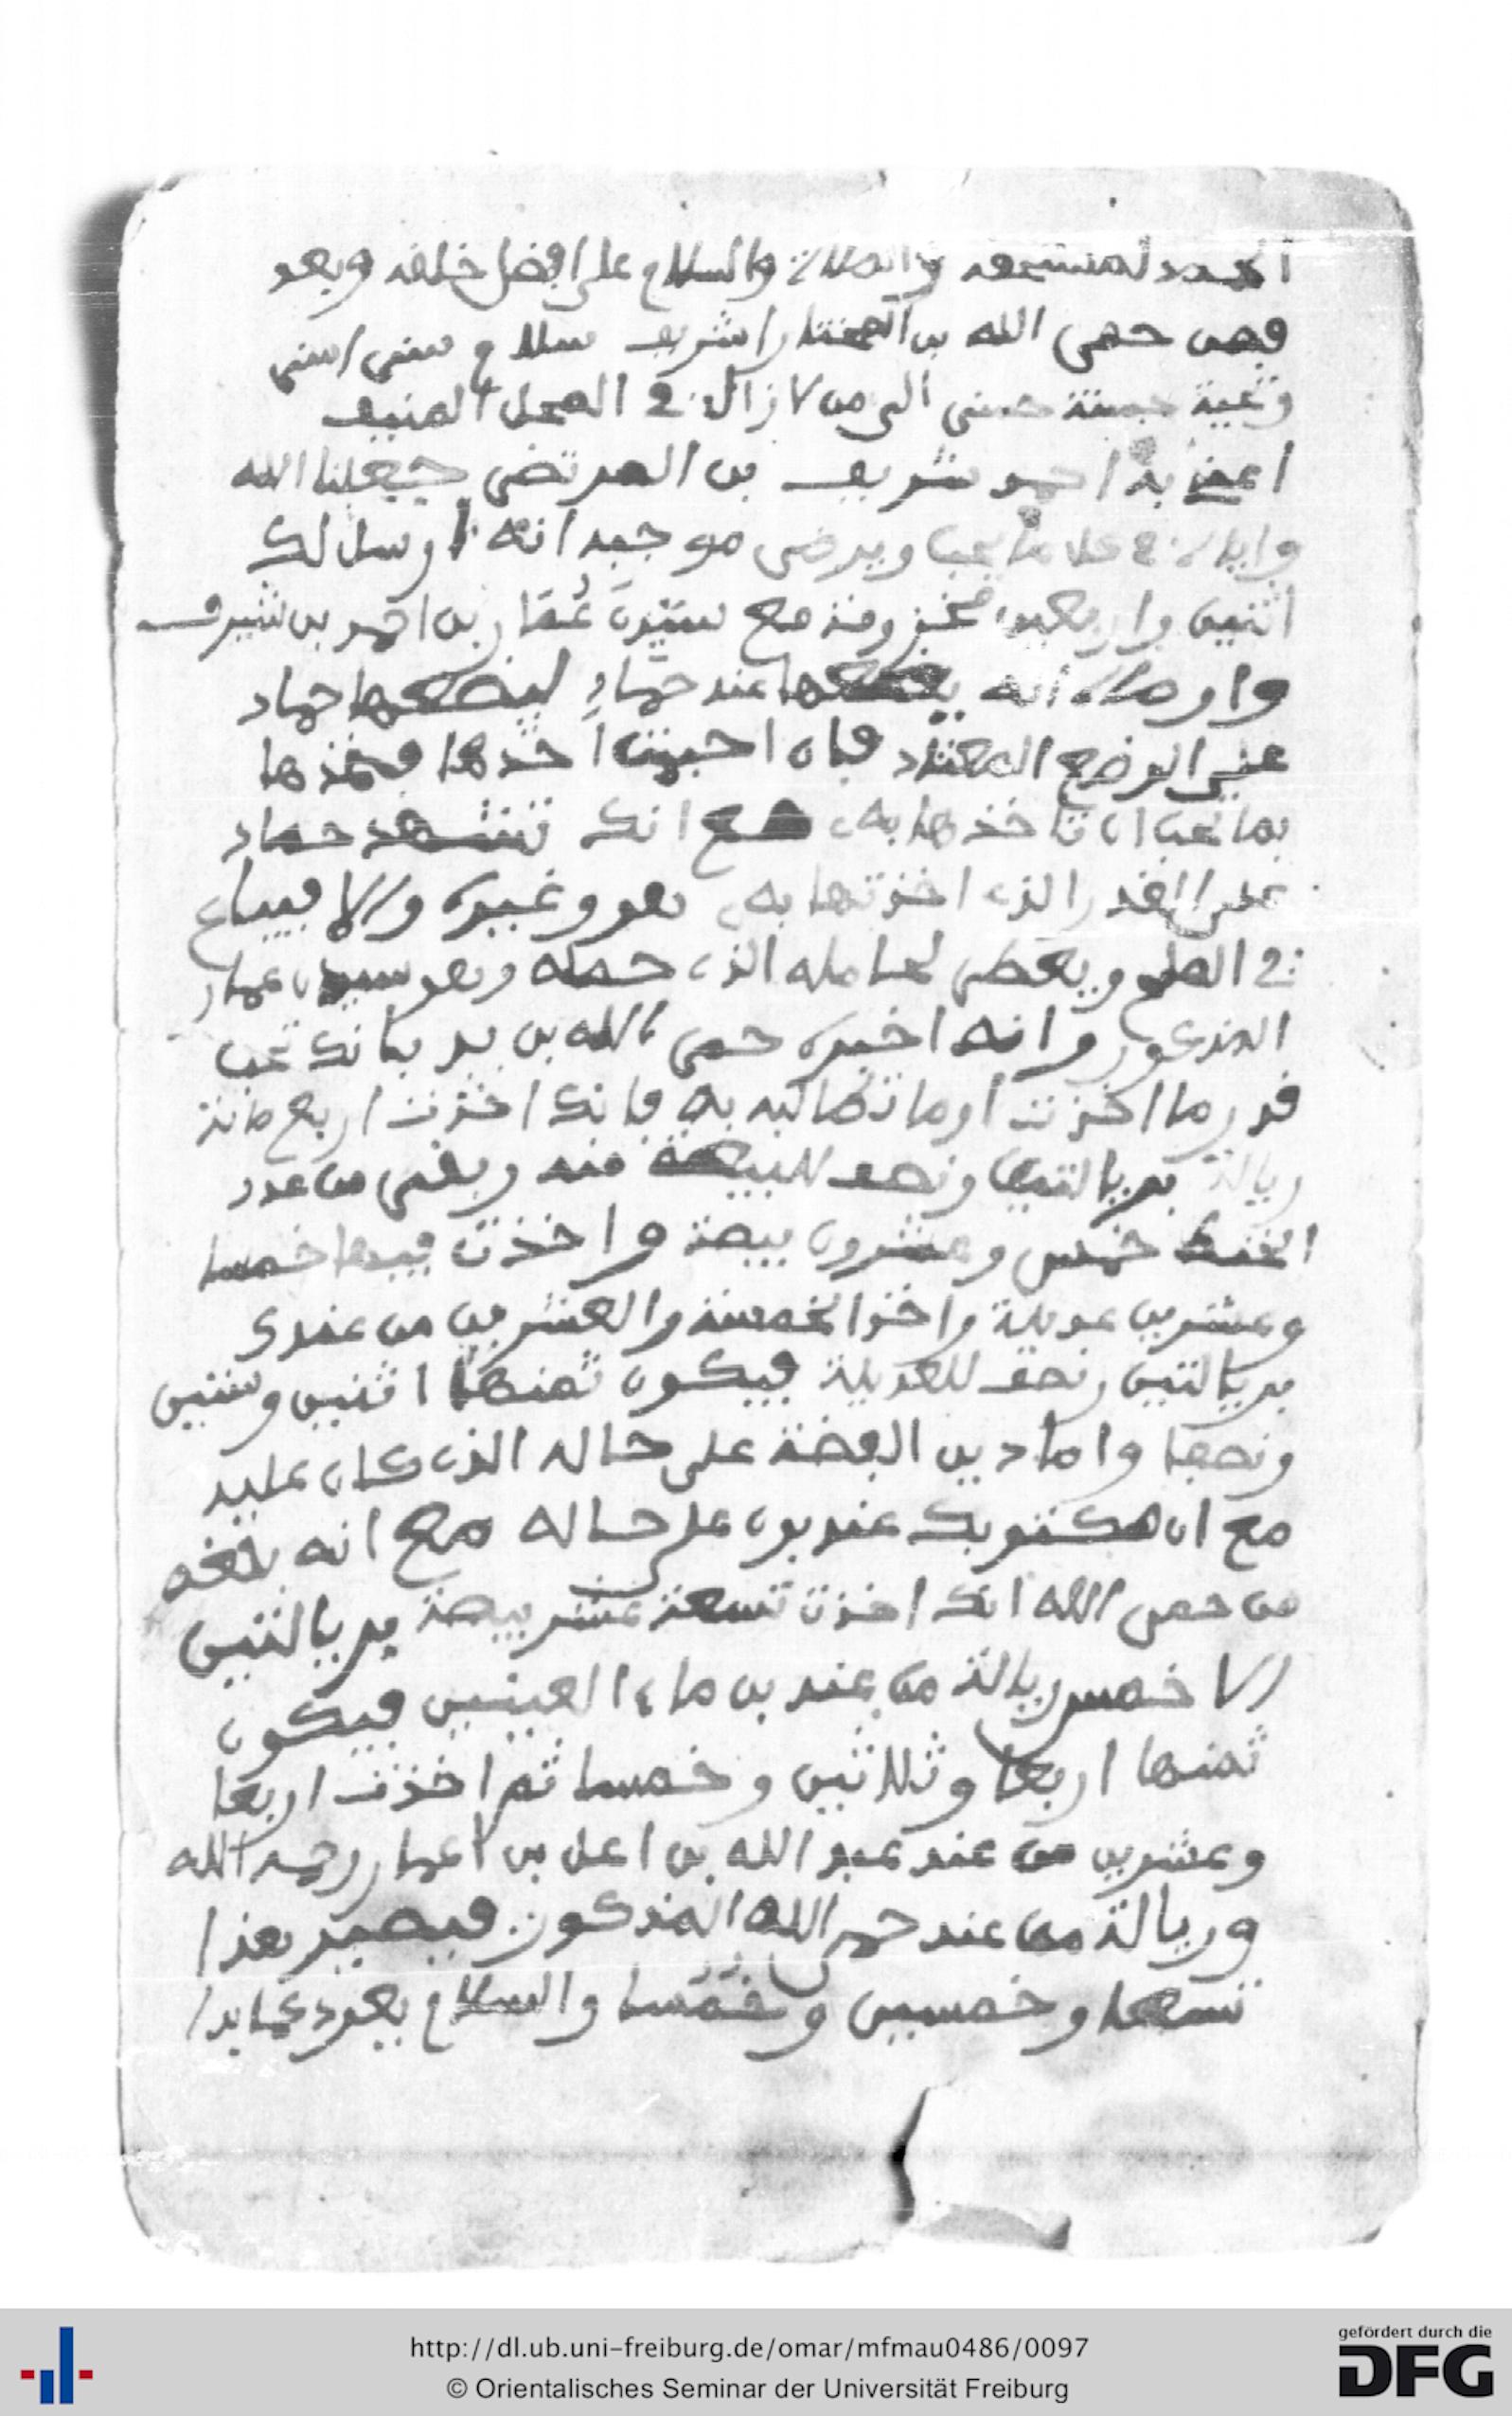 الحمد لمستحقه والصلاة والسلام على افضل خلقه وبعد
فمن حمى الله بن المختار اشريف سلام سنى اسنى
وتحية حسنة حسنى الى من لا زال في المحل المنيف
اعنى به احمد شريف بن المرتضى جعلنا الله
واياه على ما يحب ويرضى موجبه انه ارسل لك
اثنين واربعين مع سيدي عمار بن احمد بن شريف
واوصاه انه يضعها عند حماد ليضعها حماد
على الوضع المعتاد فان احببت اخذها فخذها
بما تحب ان تاخذها به مع انك تشهد حماد
على القدر الذي اخذتها به هو وغيره والا فيباع
في الملح ويعطى لحامله الذي حمله وهو سيدي عمار
المذكور وانه اخبره حمى الله بن بد بانك تحب
قدر ما اخذت او ما تطالبه به فانك اخذت اربع مائة
ريالة بريالتين ونصف للبيصة منه وبقى من عدد
خمس وعشرون بيصة واخذت فيها خمسا
وعشرين عديلة واخذ الخمسة والعشرين من عندى
بريالتين ونصف للعديلة فيكون ثمنها اثنين وستين
ونصفا واما دين الفضة على حاله الذي كان عليه
مع ان مكتوبك عنده على حاله مع انه بلغه
من حمى الله انك اخذت تسعة عشر بيصة بريالتين
الا خمس ريالة من عند بن ماء العينين فيكون
ثمنها اربعا وثلاثين وخمسا ثم اخذت اربعا
وعشرين من عند عبد الله بن اعل بن اعمار رحمه الله
وريالة من عند حمى الله المذكور فيصير هذا
تسعا وخمسين وخمسا والسلام يعود كما بدا
http://dl.ub.uni-freiburg.de/omar/mfmau0486/0097
© Orientalisches Seminar der Universität Freiburg
gefördert durch die
DFG